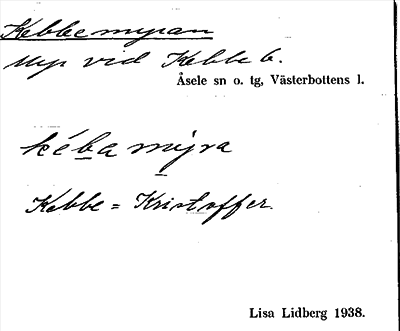 Kebbemyran
Myr vid Kebbe b.
Åsele sn o. tg, Västerbottens l.
kéba mýra
Kebbe = Kristoffer.
Lisa Lidberg 1938.